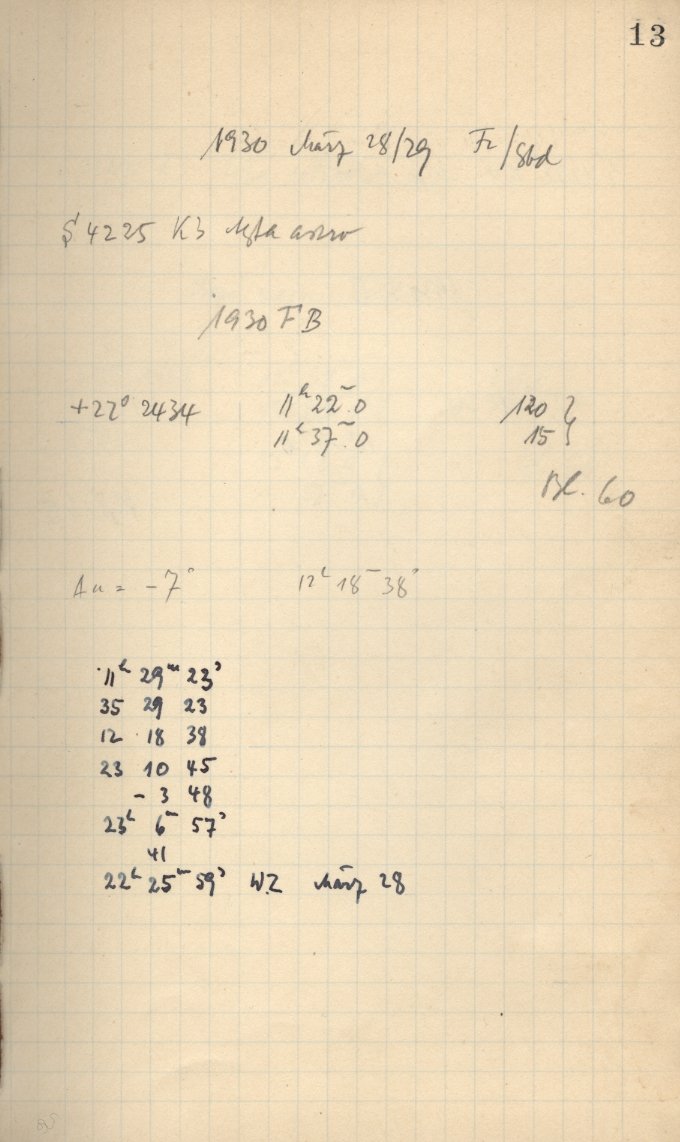 13
1930 März 28/29 Fr/Sbd
S 4225 K3 Agfa astro
1930 FB
+22° 2434 11ʰ 22ᵐ.0 120 }
11ʰ 37ᵐ.0 15 }
Bl. 60
Δu = -7ˢ 12ʰ 18ᵐ 38ˢ
11ʰ 29ᵐ 23ˢ
35 29 23
12 18 38
23 10 45
- 3 48
23ʰ 6ᵐ 57ˢ
41
22ʰ 25ᵐ 59ˢ WZ März 28